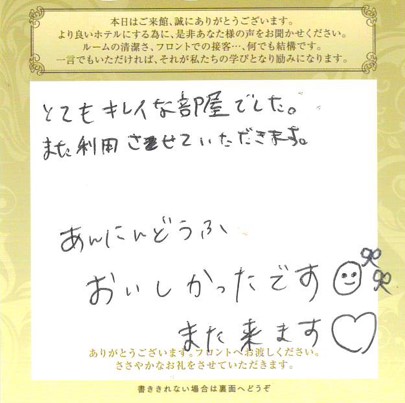 本日はご来館、誠にありがとうございます。
より良いホテルにする為に、是非あなた様の声をお聞かせください。
ルームの清潔さ、フロントでの接客…、何でも結構です。
一言でもいただければ、それが私たちの学びとなり励みになります。
とてもキレイな部屋でした。
また利用させていただきます。
あんにんどうふ、
おいしかったです
また来ます♡
ありがとうございます。フロントへお渡しください。
ささやかなお礼をさせていただきます。
書ききれない場合は裏面へどうぞ